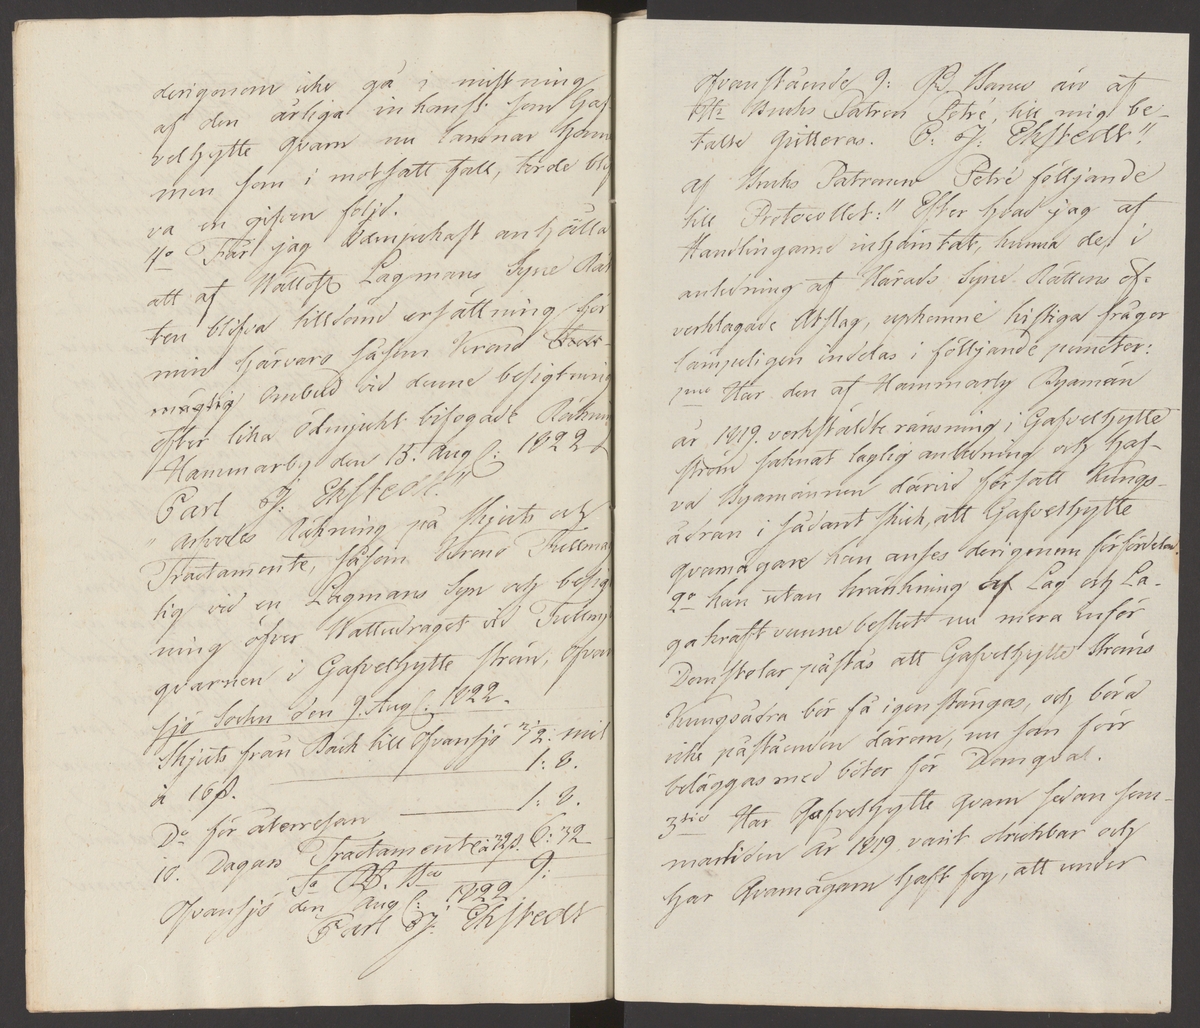 derigenom icke gå i mistning
af den årliga inkomst som Gaf
velhytte Qvarn nu lämnar honom
men som i motsatt fall, torde blif
va en gifven följd.
4o Får jag ödmjukast anhålla
att af Wällofl Lagmans Syne Rät
ten blifva tilldömd ersättning för
min härvaro såsom Krono
mägtig Ombud vid denne besigtning
efter lika ödmjukt bifogade Räkning
Hammarby den 15. Aug: 1822
Carl J: Ekstedt."
" Arfvodes Räkning på Skjuts och
Tractamente, såsom Krono Fullmäk
tig vid en Lagmans Syn och besig
ning öfver Wattudraget vid Tullmj
qvarnen i Gafvelhytte ström, Ofvan
sjö Sochn den 9. Aug: 1822.
Skjuts från Back till Ofvansjö 3 1/2 mil
à 16 s. 1: 8.
Do för återresan 1: 8.
10. Dagars Tractamente à 32 s. 6: 32
Sa Rd. Bco 9:
Ofvansjö den Aug: 1822
Carl J: Ekstedt
Ofvanstående 9: Rd Banco äro af
Bruks Patron Petré, till mig be-
talte quitteras. C: J: Ekstedt"
af Bruks Patronen Petré följande
till Protocollet: " Efter hvad jag af
Handlingarne inhämtat, kunna de i
anledning af Härads Syne Rättens öf-
verklagade Utslag, upkomne tvistiga frågor
lämpeligen indelas i följande puncter:
1mo Har den af Hammarby Byamän
år 1819. verkstäldte ränsning i Gafvelhytte
ström saknat laglig anledning och haf-
va Byamännen därvid försatt Kungs-
ådran i sådant skick, att Gafvelhytte
qvarnägare kan anses derigenom förfördelad.
2o Kan utan kränkning af Lag och La-
ga kraft vunne beslut nu mera inför
Domstolar påstås att Gafvelhytte Ströms
Kungsådra bör få igenstängas, och böra
icke påståenden därom, nu som förr
beläggas med böter för Domqval.
3tio Har Gafvelhytte Qvarn sedan som-
martiden År 1819. varit obrukbar och
har Qvarnägarn haft fog, att under